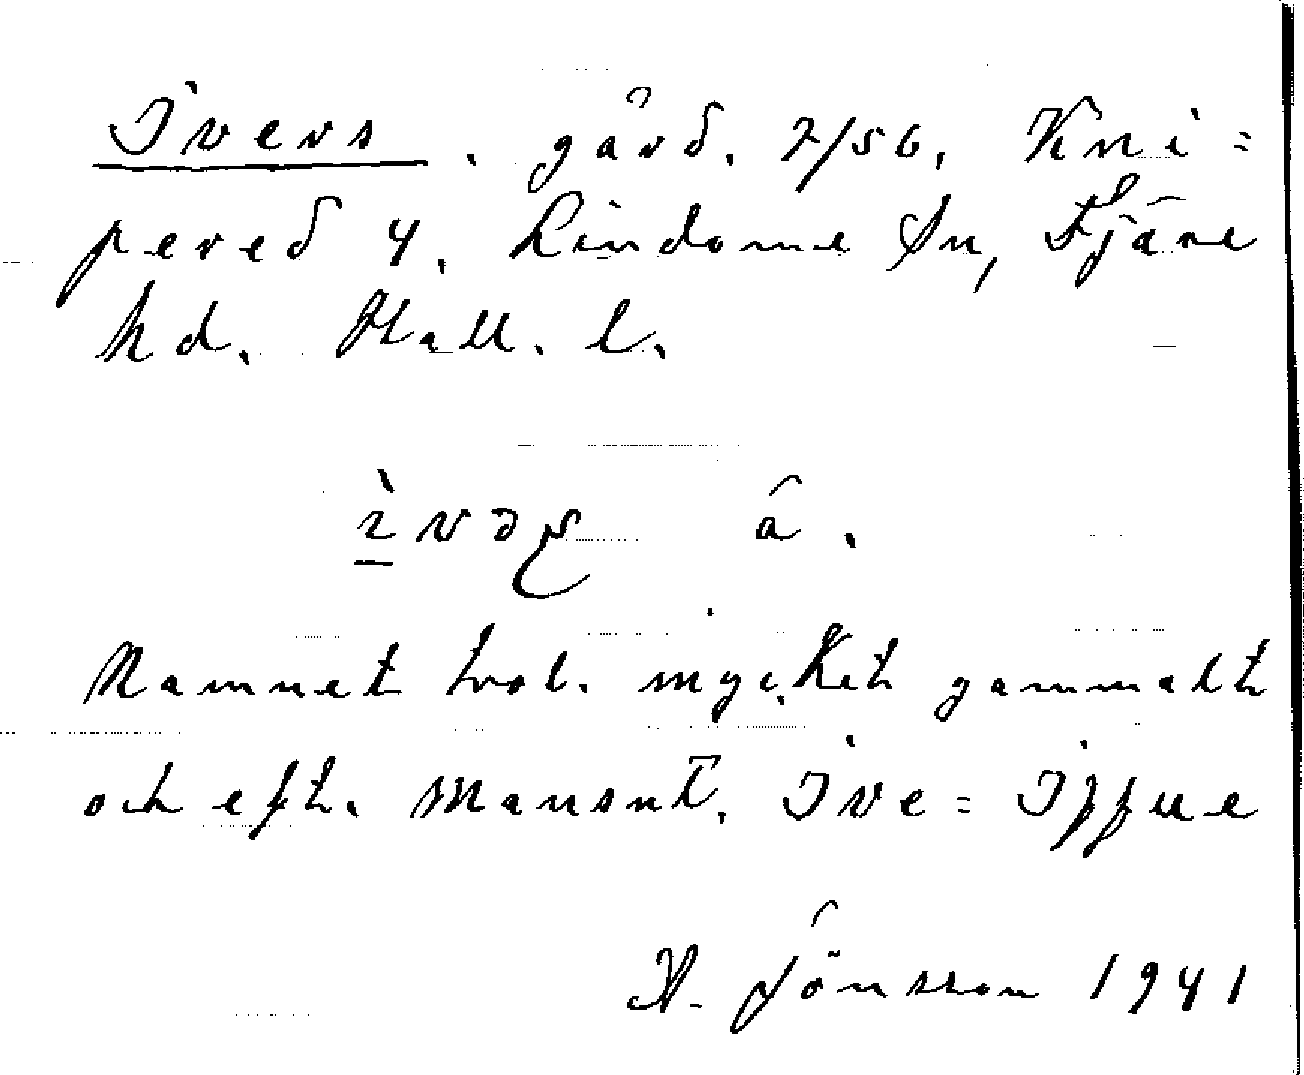 Ivers. gård. 7/56, Kni=
pered 4. Lindome Sn, Fjäre
hd. Hall. l.
ìvəʂ â.
Namnet trol. mycket gammalt
och eft. Mansnt. Ive = Iffue
A. Jönsson 1941